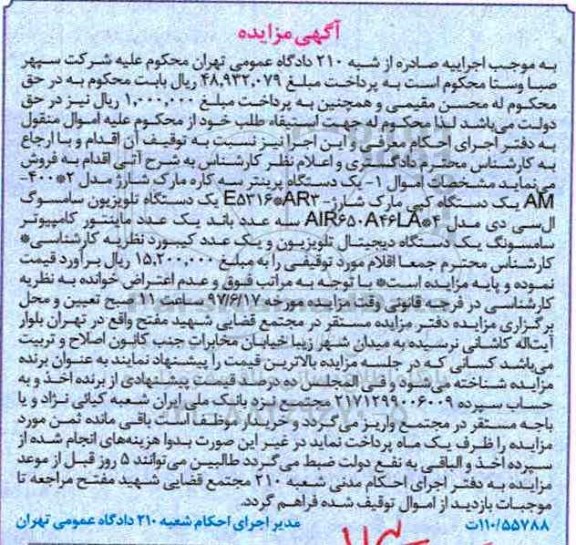 آگهی مزایده
به موجب اجراییه صادره از شعبه ۲۱۰ دادگاه عمومی تهران محکوم علیه شرکت سپهر
صبا وستا محکوم است به پرداخت مبلغ ۴۸,۹۳۲,۰۷۹ ریال بابت محکوم به در حق
محکوم له محسن مقیمی و همچنین به پرداخت مبلغ ۱,۰۰۰,۰۰۰ ریال نیز در حق
دولت می‌باشد لذا محکوم له جهت استیفاء طلب خود از محکوم علیه اموال منقول
به دفتر اجرای احکام معرفی و این اجرا نیز نسبت به توقیف آن اقدام و با ارجاع
به کارشناس محترم دادگستری و اعلام نظر کارشناس به شرح آتی اقدام به فروش
می‌نماید مشخصات اموال ۱- یک دستگاه پرینتر سه کاره مارک شارژ مدل ۲*۴۰۰-
AM یک دستگاه کپی مارک شارژ-۳E۵۳۱۶*AR یک دستگاه تلویزیون سامسونگ
ال‌سی دی مدل ۴*AIR۶۵۰A۴۶LA سه عدد باند یک عدد مانیتور کامپیوتر
سامسونگ یک دستگاه دیجیتال تلویزیون و یک عدد کیبورد نظریه کارشناسی*
کارشناس محترم جمعا اقلام مورد توقیفی را به مبلغ ۱۵,۲۰۰,۰۰۰ ریال برآورد قیمت
نموده و پایه مزایده است* با توجه به مراتب فوق و عدم اعتراض خوانده به نظریه
کارشناسی در فرجه قانونی وقت مزایده مورخه ۹۷/۶/۱۷ ساعت ۱۱ صبح تعیین و محل
برگزاری مزایده دفتر مزایده مستقر در مجتمع قضایی شهید مفتح واقع در تهران بلوار
آیت‌اله کاشانی نرسیده به میدان شهر زیبا خیابان مخابرات جنب کانون اصلاح و تربیت
می‌باشد کسانی که در جلسه مزایده بالاترین قیمت را پیشنهاد نمایند به عنوان برنده
مزایده شناخته می‌شود و فی المجلس ده درصد قیمت پیشنهادی از برنده اخذ و به
حساب سپرده ۲۱۷۱۲۹۹۰۰۶۰۰۹ مجتمع نیزد بانک ملی ایران شعبه کیائی نژاد و یا
باجه مستقر در مجتمع واریز می‌گردد و خریدار موظف است باقی مانده ثمن مورد
مزایده را ظرف یک ماه پرداخت نماید در غیر این صورت بدوا هزینه‌های انجام شده از
سپرده اخذ و الباقی به نفع دولت ضبط می‌گردد طالبین می‌توانند ۵ روز قبل از موعد
مزایده به دفتر اجرای احکام مدنی شعبه ۲۱۰ مجتمع قضایی شهید مفتح مراجعه تا
موجبات بازدید از اموال توقیف شده فراهم گردد.
۱۱۰/۵۵۷۸۸ت مدیر اجرای احکام شعبه ۲۱۰ دادگاه عمومی تهران